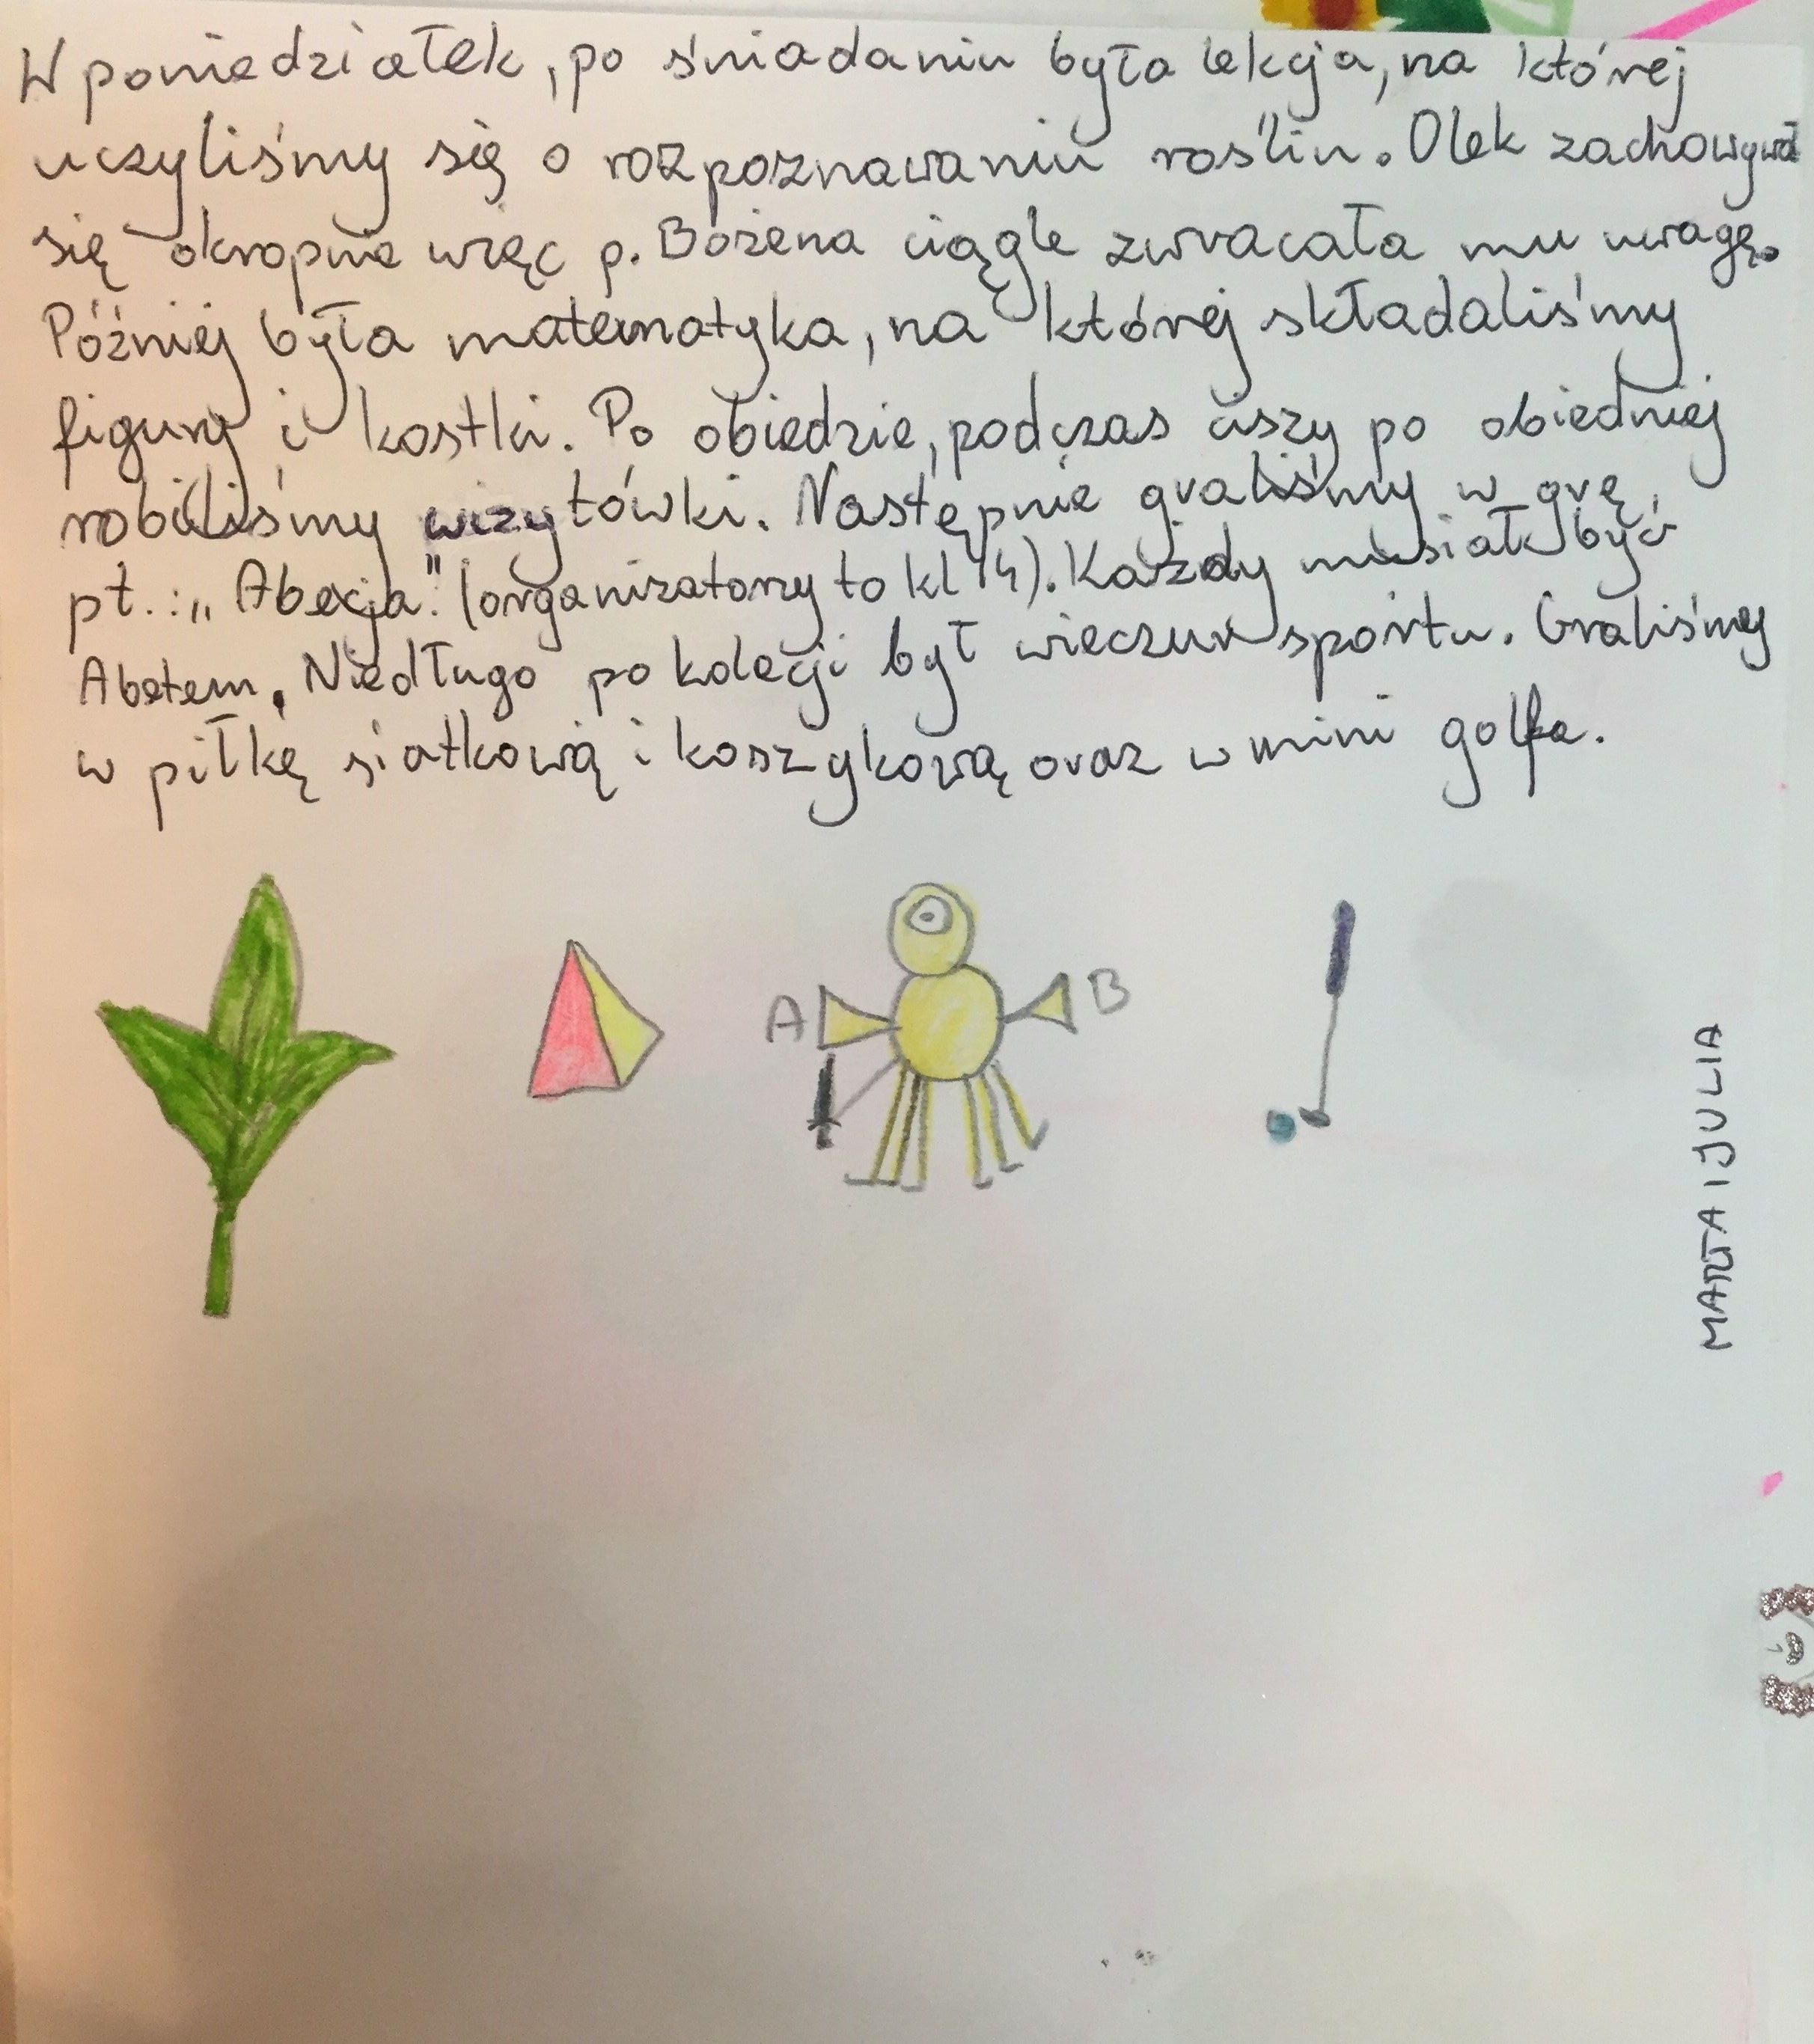 W poniedziałek, po śniadaniu była lekcja, na której
uczyliśmy się o rozpoznawaniu roślin. Olek zachowywał
się okropnie więc p. Bożena ciągle zwracała mu uwagę.
Później była matematyka, na której składaliśmy
figury i kostki. Po obiedzie, podczas ciszy po obiedniej
robiliśmy wizytówki. Następnie graliśmy w grę,
pt.: „Abecja." (organizatorzy to kl 4). Każdy musiał być
Abetem. Niedługo po kolacji był wieczur sportu. Graliśmy
w piłkę siatkową i koszykową oraz w mini golfa.
A B
MARTA I JULIA